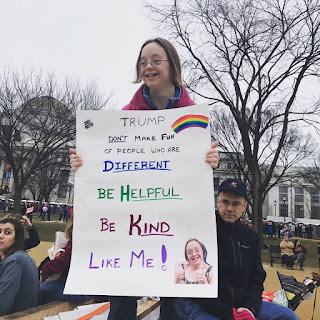 TRUMP
DON'T MAKE FUN
OF PEOPLE WHO ARE
DIFFERENT
BE HELPFUL
BE KIND
LIKE ME!